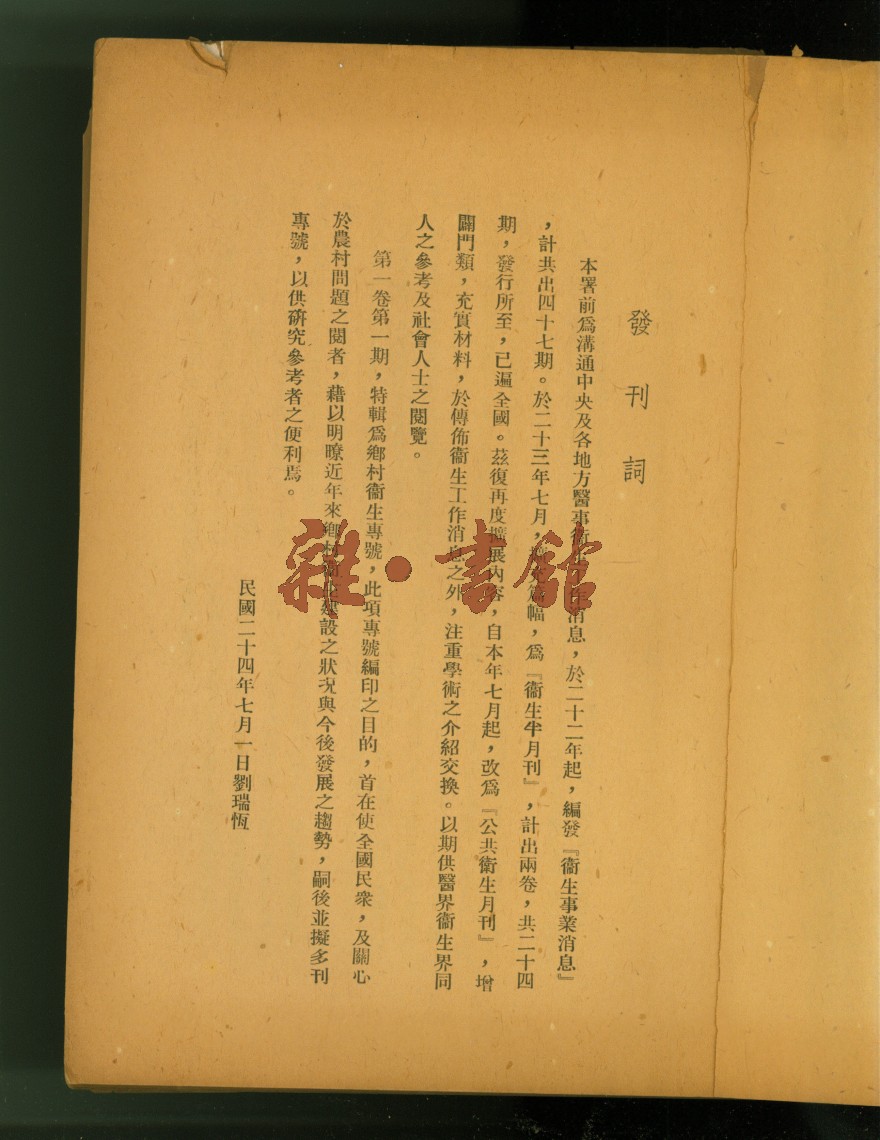 發刊詞
本署前爲溝通中央及各地方醫事衞生工作消息，於二十二年起，編發『衞生事業消息』
，計共出四十七期。於二十三年七月，篇幅，爲『衞生半月刊』，計出兩卷，共二十四
期，發行所至，已遍全國。茲復再度擴展內容，自本年七月起，改爲『公共衞生月刊』，增
闢門類，充實材料，於傳佈衞生工作消息之外，注重學術之介紹交換。以期供醫界衞生界同
人之參考及社會人士之閱覽。
第一卷第一期，特輯爲鄉村衞生專號，此項專號編印之目的，首在使全國民衆，及關心
於農村問題之閱者，藉以明瞭近年來鄉村衞生建設之狀況與今後發展之趨勢，嗣後並擬多刊
專號，以供硏究參考者之便利焉。
民國二十四年七月一日劉瑞恆
雜·書館